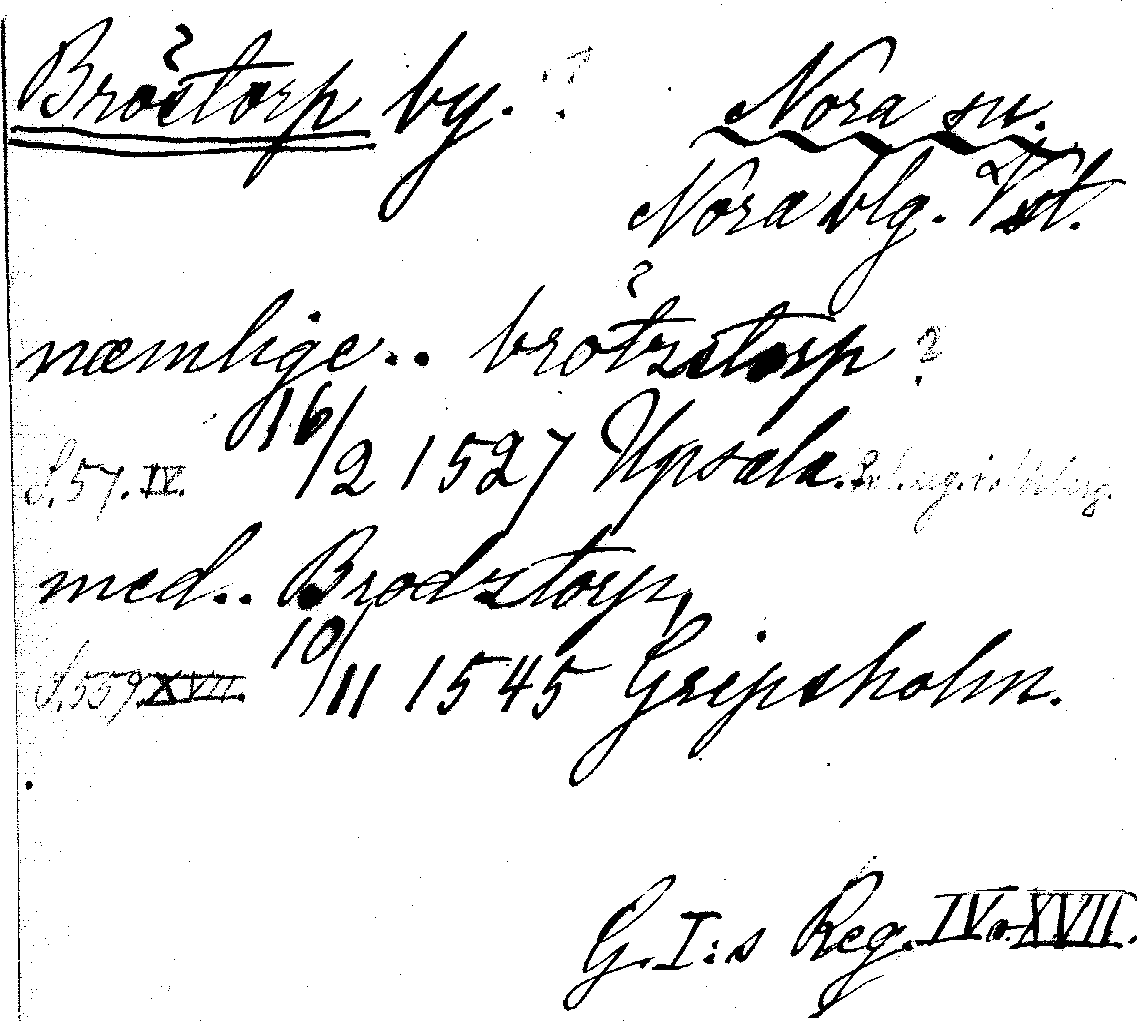 Bröstorp by. ?
Nora sn.
Nora blg. Vst.
næmlige.. brötzstorp ?
S. 57. IV. 16/2 1527 Upsala.
med.. Brodztorp,
S. 559 XVII. 10/11 1545 Gripsholm.
G. I:s Reg. IV o. XVII.